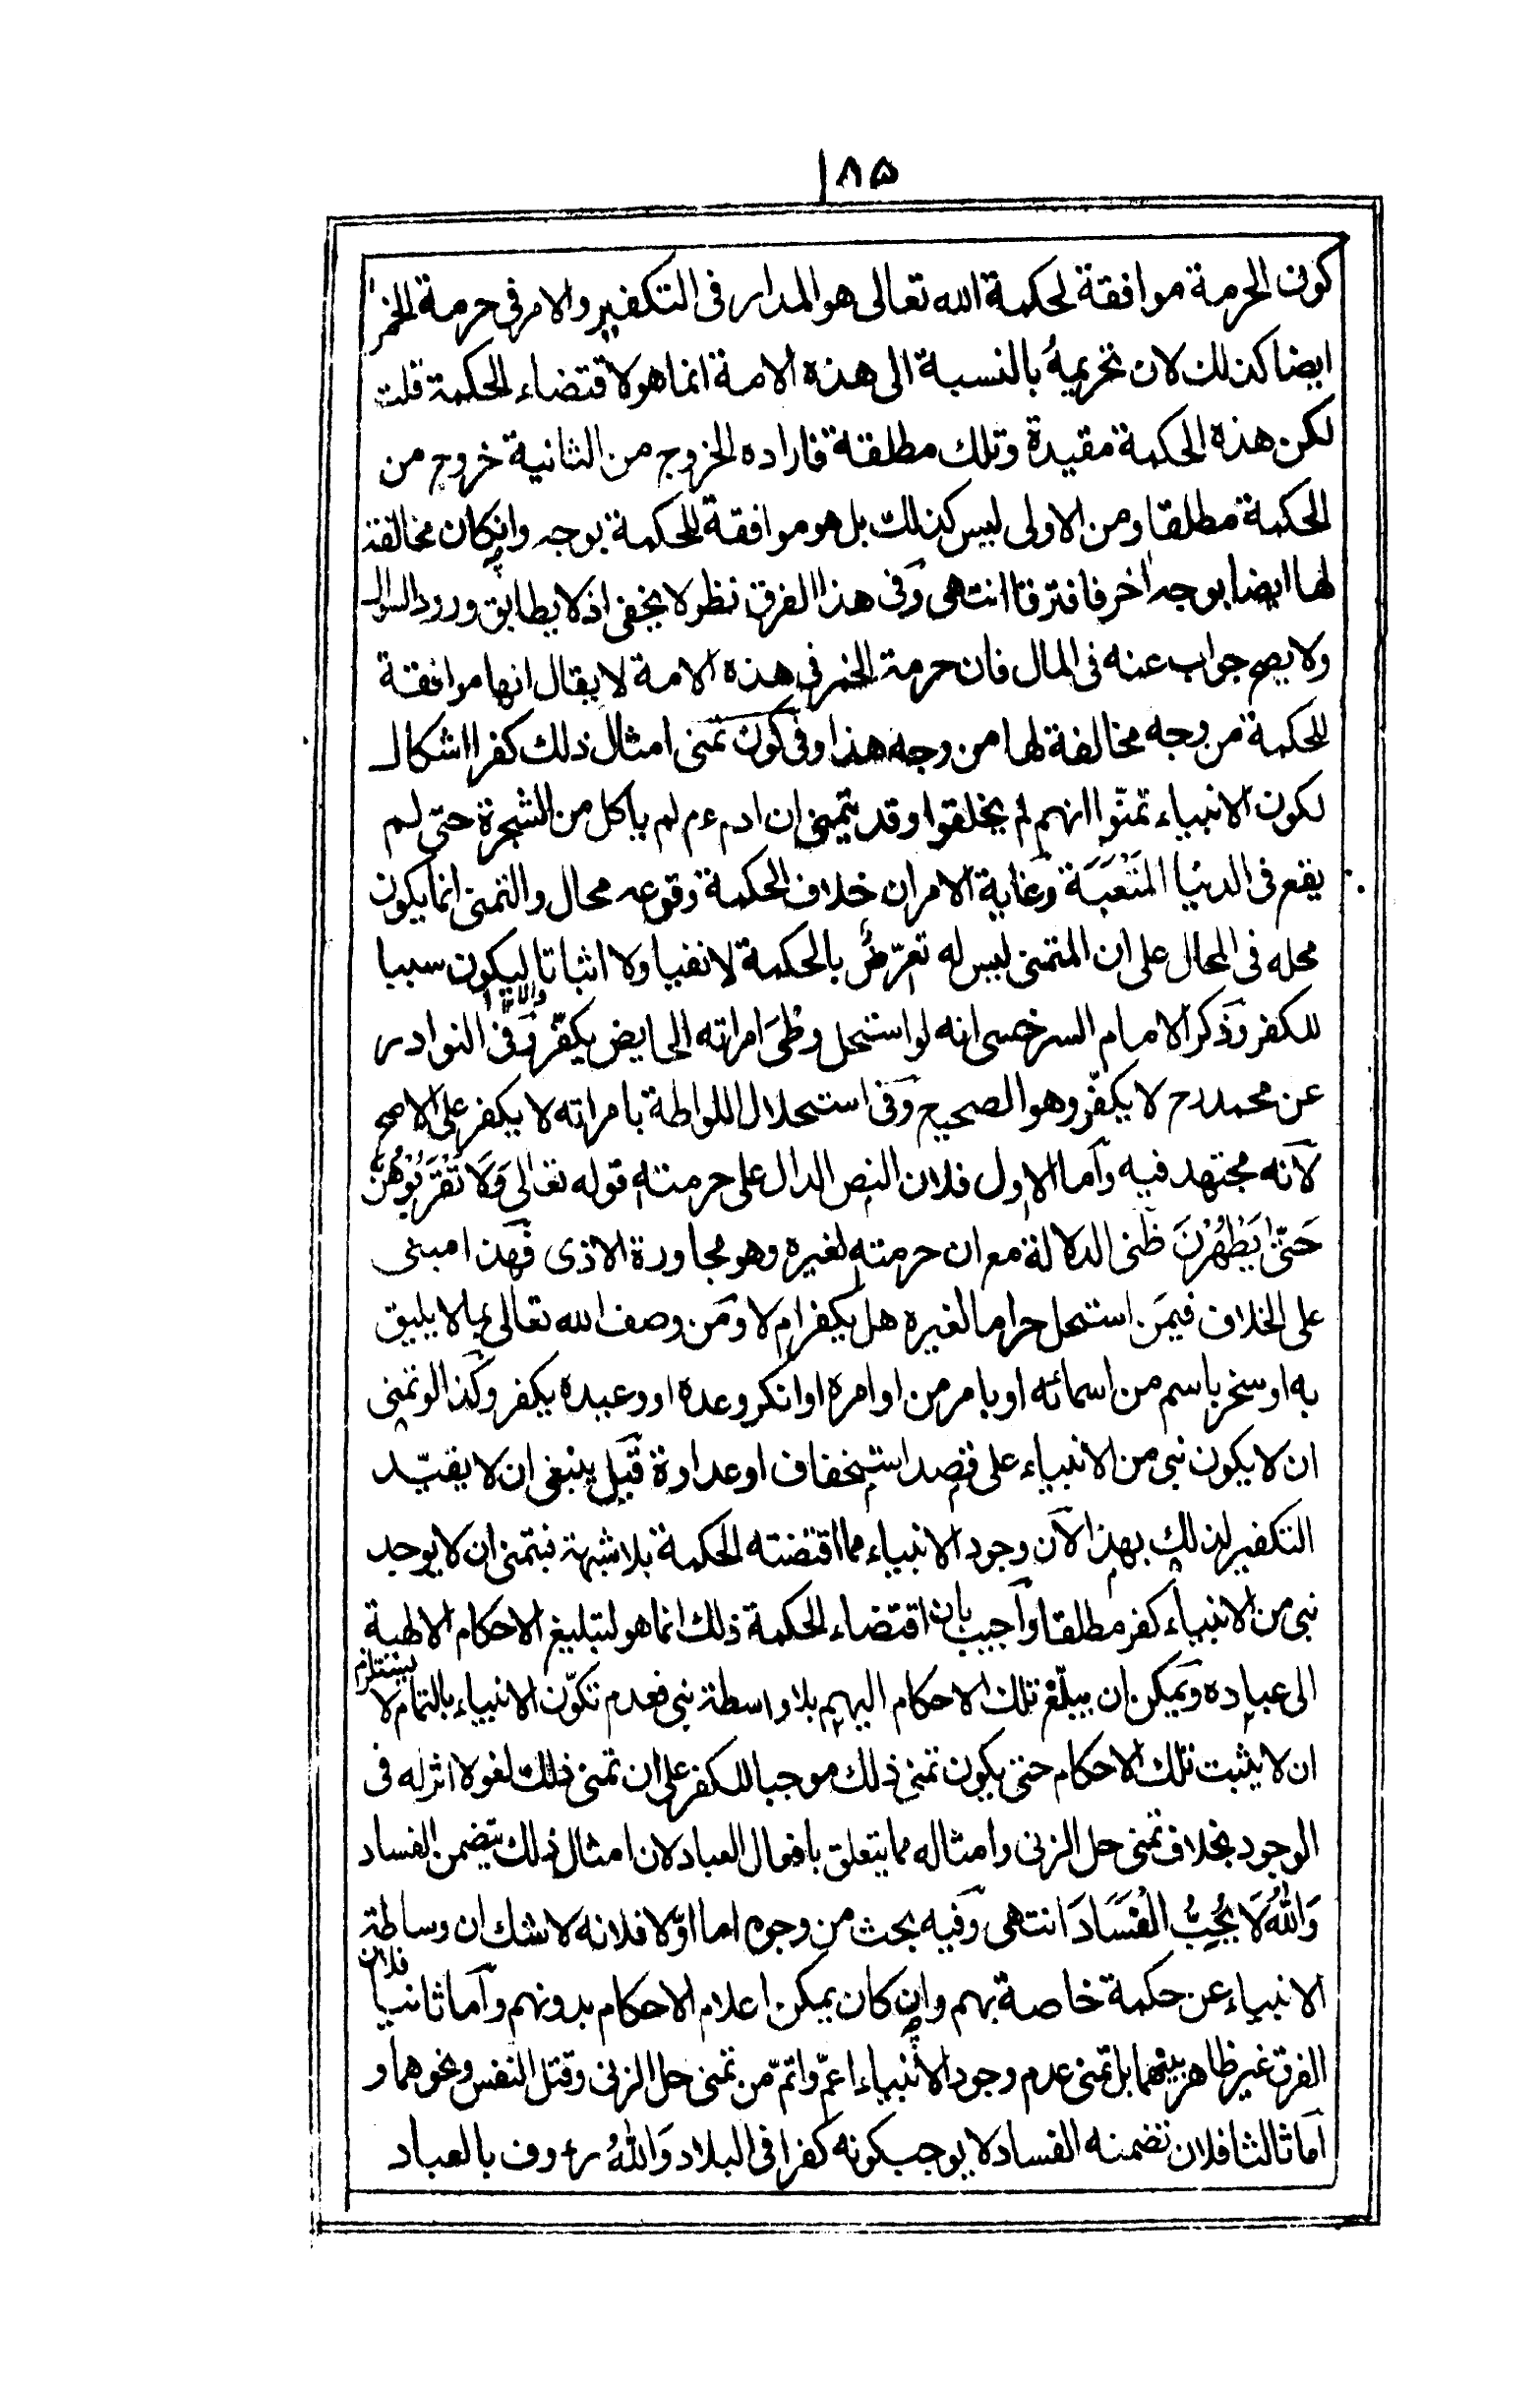 ١٨٥
كون الحرمة موافقة لحكمة الله تعالى هو المدار فى التكفير والامر فى حرمة الخمر
ايضا كذلك لان تحريمهُ بالنسبة الى هذه الامة انما هو لاقتضاء الحكمة قلت
لكن هذه الحكمة مقيدة وتلك مطلقة فاراده الخروج من الثانية خروج من
الحكمة مطلقا ومن الاولى ليس كذلك بل هو موافقة للحكمة بوجه وانكان مخالفة
لها ايضا بوجه اخر فافترقا انتهى وفى هذا الفرق نظر لا يخفى اذ لا يطابق ورود السوال
ولا يصح جواب عنه فى المال فان حرمة الخمر فى هذه الامة لا يقال انها موافقة
للحكمة من وجه مخالفة لها من وجه هذا وفى كون تمنى امثال ذلك كفرا اشكال
لكون الانبياء تمنّوا انهم لم يخلقوا وقد يتمنى ان ادم ءم لم ياكل من الشجرة حتى لم
يقع فى الدنيا المَتْعَبَة وغاية الامر ان خلاف الحكمة وقوعه محال والتمنى انما يكون
محله فى المحال على ان المتمنى ليس له تعرّضٌ بالحكمة لا نفيا ولا اثباتا ليكون سببا
للكفر وذكر الامام السرخسى انه لو استحل وطْىَ امراته الحايض يكفّر وفى النوادر
عن محمد رح لا يكفّر وهو الصحيح وفى استحلال اللواطة بامراته لا يكفر على الاصح
لانه مجتهد فيه واما الاول فلان النص الدال على حرمته قوله تعالى وَلَا تَقْرَبُوْهُنَّ
حَتّٰى يَطْهُرْنَ ظنى الدلالة مع ان حرمته لغيره وهو مجاورة الاذى فهذا مبنى
على الخلاف فيمن استحل حراما لغيره هل يكفر ام لا ومن وصف الله تعالى بما لا يليق
به او سخر باسم من اسمائه او بامر من اوامره او انكر وعده او وعيده يكفر وكذا لو تمنى
ان لا يكون نبى من الانبياء على قصد استخفاف او عداوة قيل ينبغى ان لا يقيّد
التكفير لذلك بهذا لان وجود الانبياء مما اقتضته الحكمة بلا شبهة فتمنى ان لا يوجد
نبى من الانبياء كفر مطلقا واجيب بان اقتضاء الحكمة ذلك انما هو لتبليغ الاحكام الالهية
الى عباده ويمكن ان يبلّغ تلك الاحكام اليهم بلا واسطة نبى فعدم تكوّن الانبياء بالتمام لا يستلزم
ان لا يثبت تلك الاحكام حتى يكون تمنى ذلك موجبا للكفر على ان تمنى ذلك لغو لا اثر له فى
الوجود بخلاف تمنى حل الزنى وامثاله مما يتعلق بافعال العباد لان امثال ذلك يتضمن الفساد
وَاللهُ لَا يُحِبُّ الْفَسَادَ انتهى وفيه بحث من وجوه اما اوّلا فلانه لا شك ان وساطة
الانبياء عن حكمة خاصة بهم وان كان يمكن اعلام الاحكام بدونهم واما ثانيا فلان
الفرق غير ظاهر بينهما بل تمنى عدم وجود الانبياء اعمّ واتمّ من تمنى حل الزنى وقتل النفس ونحوهما و
اما ثالثا فلان تضمنه الفساد لا يوجب كونه كفرا فى البلاد وَاللهُ رءوف بالعباد